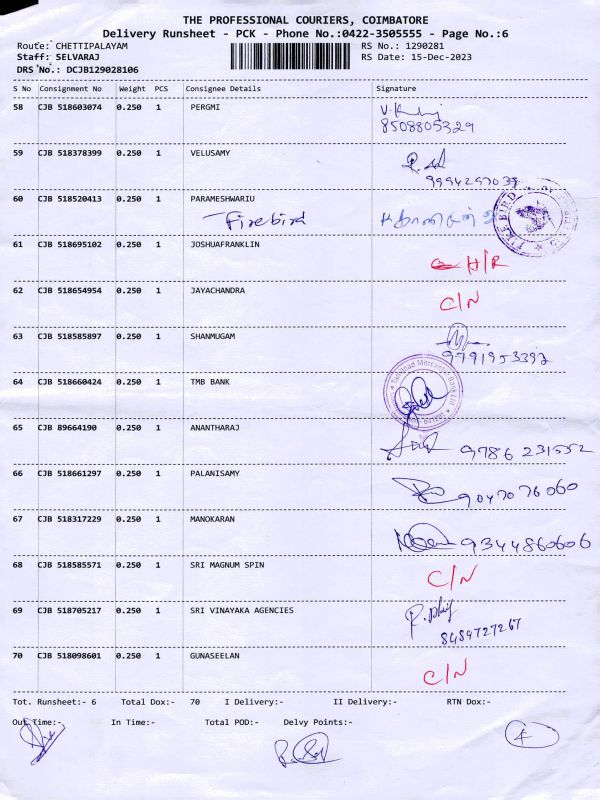 THE PROFESSIONAL COURIERS, COIMBATORE
Delivery Runsheet - PCK - Phone No.:0422-3505555 - Page No.:6
Route: CHETTIPALAYAM RS No.: 1290281
Staff: SELVARAJ RS Date: 15-Dec-2023
DRS No.: DCJB129028106
S No Consignment No Weight PCS Consignee Details Signature
58 CJB 518603074 0.250 1 PERGMI
8508805329
59 CJB 518378399 0.250 1 VELUSAMY
60 CJB 518520413 0.250 1 PARAMESHWARIU
Firebird
61 CJB 518695102 0.250 1 JOSHUAFRANKLIN H/R
62 CJB 518654954 0.250 1 JAYACHANDRA C/N
63 CJB 518585897 0.250 1 SHANMUGAM
9791953392
64 CJB 518660424 0.250 1 TMB BANK
65 CJB 89664190 0.250 1 ANANTHARAJ 9786231552
66 CJB 518661297 0.250 1 PALANISAMY 9047076060
67 CJB 518317229 0.250 1 MANOKARAN 9344860606
68 CJB 518585571 0.250 1 SRI MAGNUM SPIN C/N
69 CJB 518705217 0.250 1 SRI VINAYAKA AGENCIES
8489727267
70 CJB 518098601 0.250 1 GUNASEELAN C/N
Tot. Runsheet:- 6 Total Dox:- 70 I Delivery:- II Delivery:- RTN Dox:-
Out Time:- In Time:- Total POD:- Delvy Points:-
4